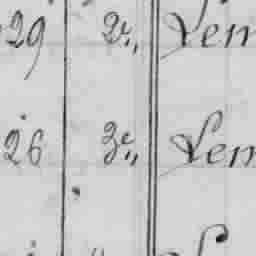 29 2e„ Lem
26 3e„ Lem